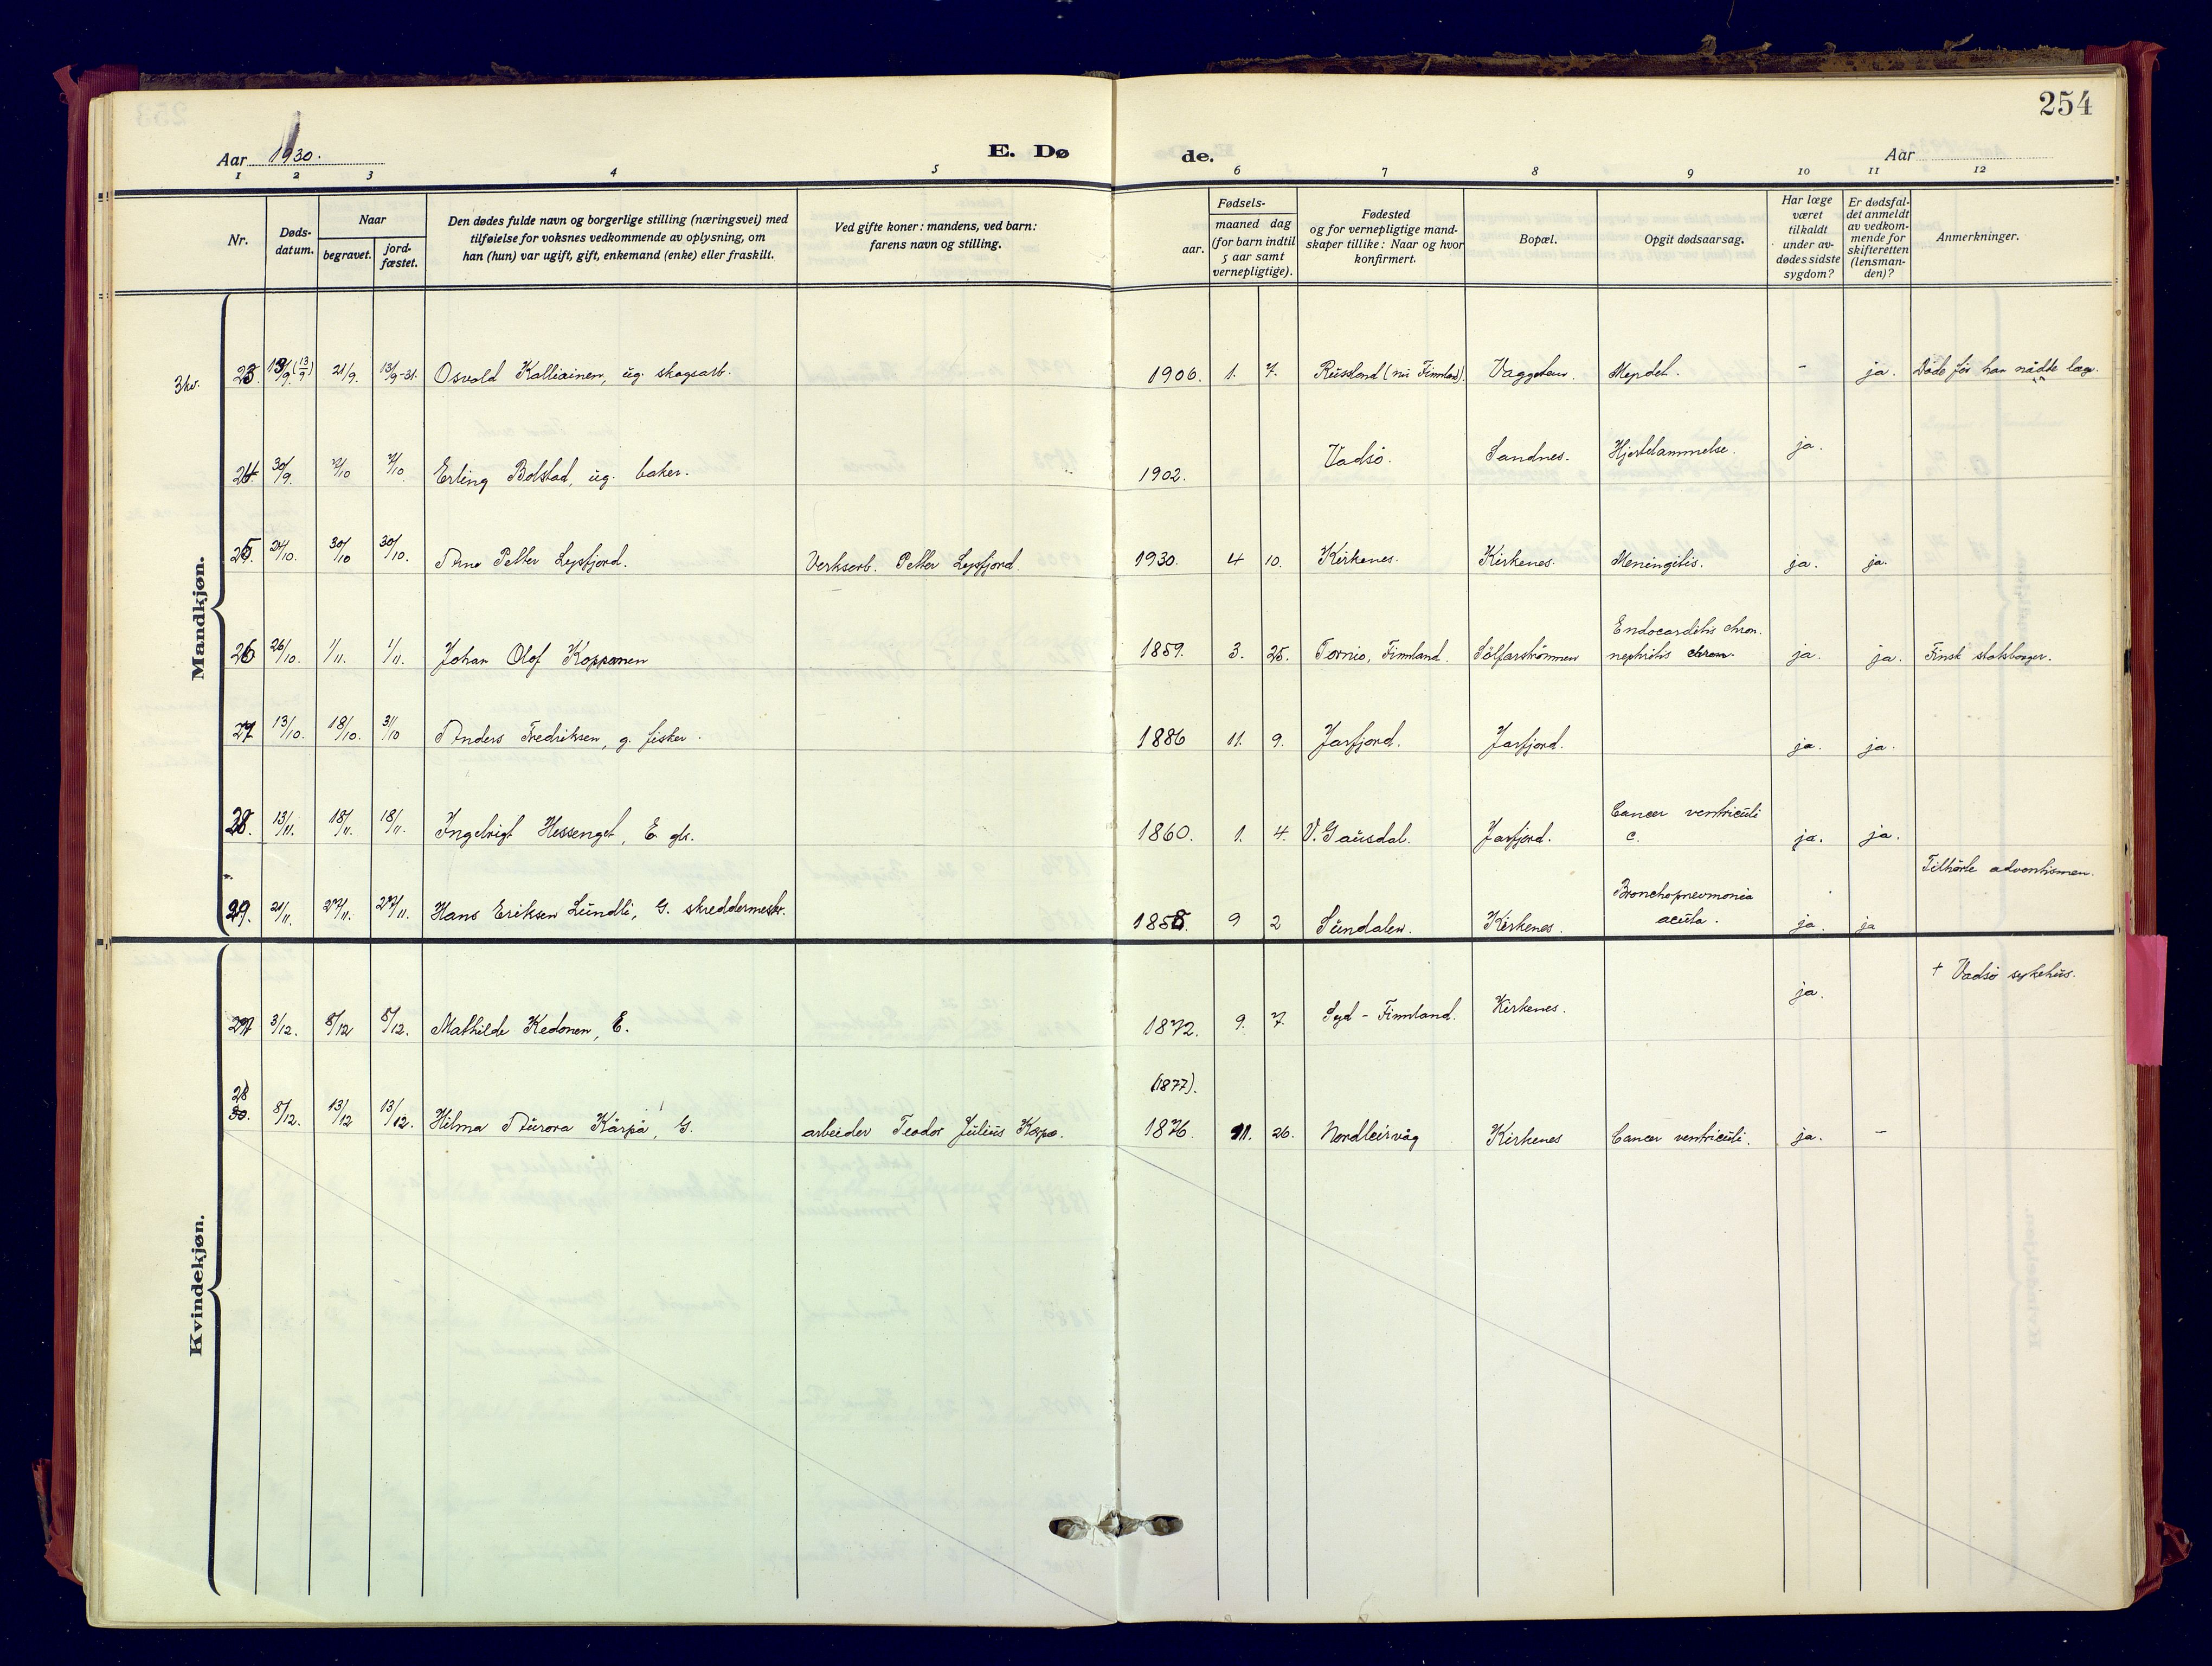 254
Aar 1930.
E. Dø de.
Aar
1 2 3 4 5 6 7 8 9 10 11 12
Nr.
Døds-
datum.
Naar
begravet.
jord-
fæstet.
Den dødes fulde navn og borgerlige stilling (næringsvei) med
tilføielse for voksnes vedkommende av oplysning, om
han (hun) var ugift, gift, enkemand (enke) eller fraskilt.
Ved gifte koner: mandens, ved barn:
farens navn og stilling.
Fødsels-
aar.
maaned dag
(for barn indtil
5 aar samt
vernepligtige).
Fødested
og for vernepligtige mand-
skaper tillike: Naar og hvor
konfirmert.
Bopæl.
Opgit dødsaarsag.
Har læge
været
tilkaldt
under av-
dødes sidste
sygdom?
Er dødsfal-
det anmeldt
av vedkom-
mende for
skifteretten
(lensman-
den)?
Anmerkninger.
Mandkjøn.
3kv. 23. 13/9. (13/9) 21/9. 13/9-31. Osvald Kalliainen, ug. skogsarb. 1906. 1. 7. Russland (nu Finnland). Vaggetem. - ja. Døde før han nådde læge.
24. 30/9. 7/10 7/10. Erling Bolstad, ug. baker. 1902. Vadsø. Sandnes. Hjertelammelse. ja.
25. 24/10. 30/10 30/10. Arne Petter Leysfjord. Verksarb. Petter Leysfjord. 1930. 4 10. Kirkenes. Kirkenes. Meningitis. ja. ja.
Endocarditis chron.
26 26/10. 1/11. 1/11. Johan Olof Koppanen 1859. 3. 25. Tornio, Finnland. Solfarstrømmen nephritis chron. ja. ja. Finsk statsborger.
27 13/10. 18/10. 31/10 Anders Fredriksen, g. fisker. 1886 11. 9. Jarfjord. Jarfjord. ja. ja.
Cancer ventriculi
28. 13/11. 18/11. 18/11. Ingebrigt Hessenget, E. 1860. 1. 4. V. Gausdal. Jarfjord. c. ja. ja.
Tilhørte adventismen.
Bronchopnevmonia
29. 21/11. 27/11. 27/11. Hans Eriksen Lundli, G. skreddermester. 1858. 9 2 Sundalen. Kirkenes. acuta. ja. ja
Kvindekjøn.
† Vadsø sykehus.
27 3/12. 8/12 8/12. Mathilde Kedonen, E. 1872. 9. 7. Syd-Finnland. Kirkenes. ja.
28 (1877).
30. 8/12. 13/12 13/12. Hilma Aurora Kärpä, G. arbeider Teodor Julius Kärpä. 1876. 11. 26. Nordleirvåg Kirkenes Cancer ventriculi. ja. -